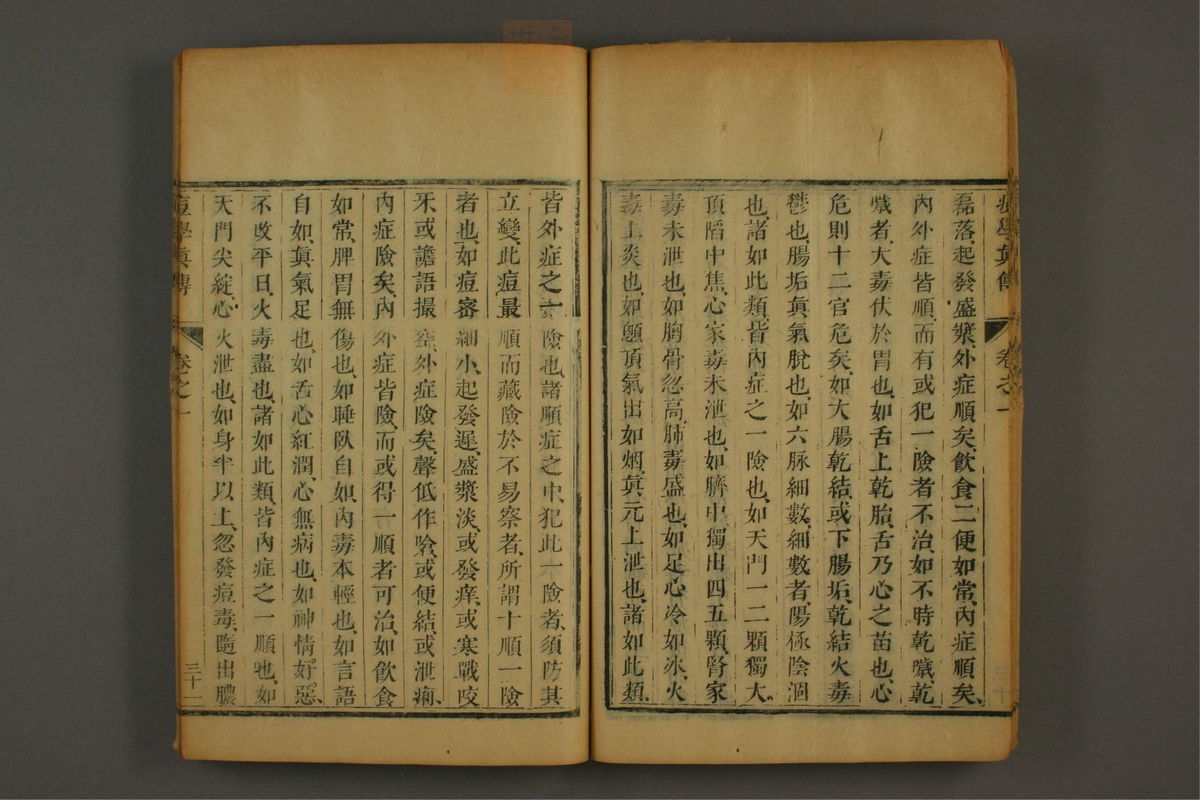 痘學真傳 卷之一
磊落起發盛漿、外症順矣、飲食二便如常、內症順矣、
內外症皆順、而有或犯一險者不治、如不時乾嘔、乾
嘔者、大毒伏於胃也、如舌上乾胎、舌乃心之苗也、心
危則十二官危矣、如大腸乾結或下腸垢、乾結火毒
鬱也、腸垢眞氣脫也、如六脉細數、細數者陽極陰涸
也、諸如此類、皆內症之一險也、如天門一二顆獨大、
頂陷中焦、心家毒未泄也、如臍中獨出四五顆、腎家
毒未泄也、如胸骨忽高、肺毒盛也、如足心冷如冰、火
毒上炎也、如顖頂氣出如烟、眞元上泄也、諸如此類、
皆外症之一險也、諸順症之中、犯此一險者、須防其
立變、此痘最順而藏險於不易察者、所謂十順一險
者也、如痘密細小、起發遲、盛漿淡、或發癢、或寒戰咬
牙、或譫語撮空、外症險矣、聲低作嗆、或便結、或泄痢、
內症險矣、內外症皆險、而或得一順者可治、如飲食
如常、脾胃無傷也、如睡臥自如、內毒本輕也、如言語
自如、眞氣足也、如舌心紅潤、心無病也、如神情好惡、
不改平日、火毒盡也、諸如此類、皆內症之一順也、如
天門尖綻、心火泄也、如身半以上、忽發痘毒、隨出膿
痘學眞傳 卷之一 三十一